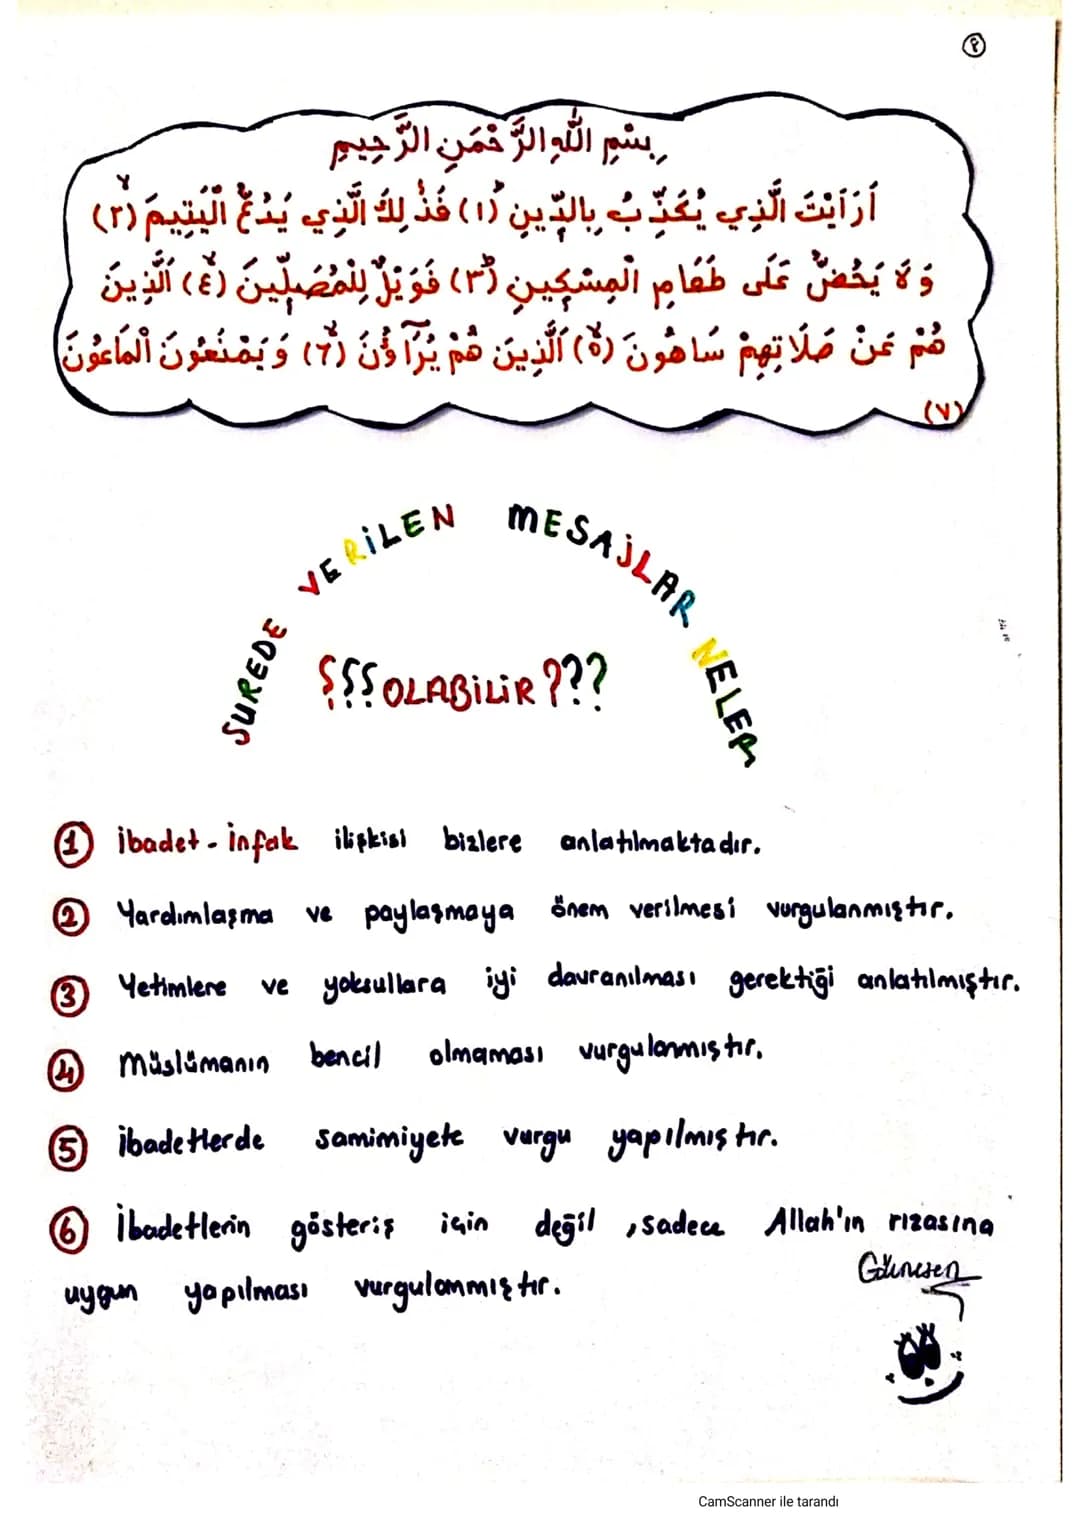 بِسْمِ اللّٰهِ الرَّحْمَنِ الرَّحِيمِ
أَرَأَيْتَ الَّذِي يُكَذِّبُ بِالدِّينِ (١) فَذٰلِكَ الَّذِي يَدُعُّ الْيَتِيمَ (٢)
وَلَا يَحُضُّ عَلَى طَعَامِ الْمِسْكِينِ (٣) فَوَيْلٌ لِلْمُصَلِّينَ (٤) اَلَّذِينَ
هُمْ عَنْ صَلَاتِهِمْ سَاهُونَ (٥) اَلَّذِينَ هُمْ يُرَآؤُنَ (٦) وَيَمْنَعُونَ الْمَاعُونَ
(٧)
SUREDE VERİLEN MESAJLAR NELER
??? OLABİLİR ???
1 İbadet - İnfak ilişkisi bizlere anlatılmaktadır.
2 Yardımlaşma ve paylaşmaya önem verilmesi vurgulanmıştır.
3 Yetimlere ve yoksullara iyi davranılması gerektiği anlatılmıştır.
4 Müslümanın bencil olmaması vurgulanmıştır.
5 İbadetlerde samimiyete vurgu yapılmıştır.
6 İbadetlerin gösteriş için değil, sadece Allah'ın rızasına
uygun yapılması vurgulanmıştır.
CamScanner ile tarandı